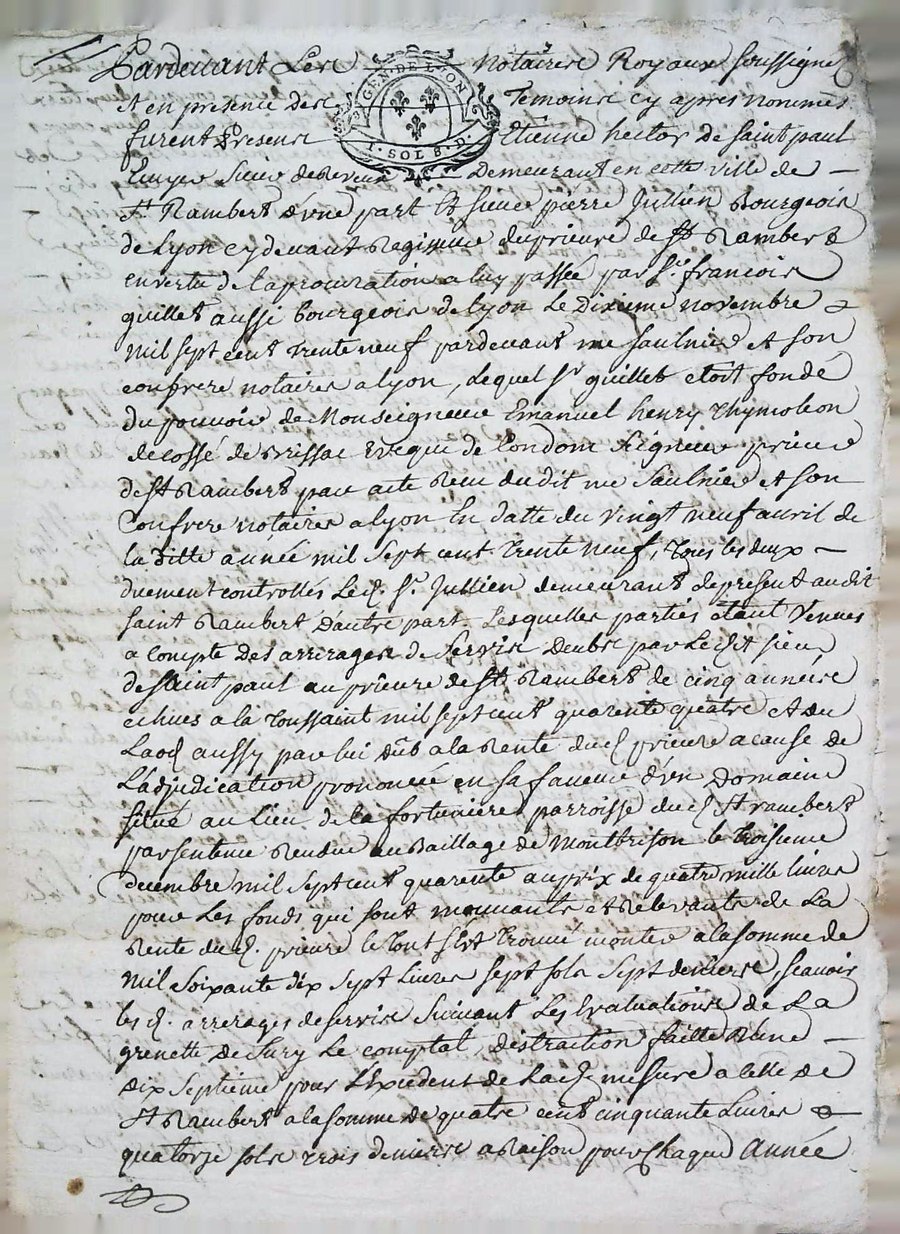 Pardevant Les notaires Royaux soussignez
GEN. DE LYON
1. SOL 8. D.
Et en presence des temoins cy apres nommés
furent Presens Etienne hector De saint paul
Ecuyer Sieur de Demeurant en cette ville de
St. Rambert d'vne part Et sieur pierre Jullien Bourgeois
de Lyon cydevant Regisseur du prieuré de St Rambert
en vertu de la procuration a luy passée par Sr. francois
guillet aussi bourgeois de lyon Le Dixieme novembre
mil sept cent trente neuf pardevant me saulnier et son
confrere notaires a lyon, lequel Sr guillet etoit fondé
du pouvoir de Monseigneur Emanuel henry thymoleon
de cossé de Brissac Eveque de Condom Seigneur prieur
de St Rambert par acte Receu dudit me Saulnier et son
Confrere notaires a lyon En datte du vingt neuf avril de
la ditte année mil sept cent trente neuf, tous les deux
duement controllés Led. Sr. Jullien demeurant de present audit
saint Rambert d'autre part. Lesquelles parties etant venues
a compte Des arrerages de Servis deubs par Led. sieur
de saint paul au prieuré de St Rambert de cinq années
echues a la toussaint mil sept cent quarente quatre et du
Laod aussy par lui dub a la Rente dud. prieuré a cause de
L'adjudication prononcée en sa faveur d'vn Domaine
situé au Lieu de la fortuniere parroisse dud. St rambert
par sentence Rendue au Baillage de Montbrison le troisieme
decembre mil sept cent quarente au prix de quatre mille livres
pour Les fonds qui sont mouvants et Relevants de La
Rente dud. prieuré le tout s'est trouvé monter a la somme de
mil soixante dix sept Livres sept sols sept deniers, scavoir
les d. arrerages de servis suivant Les Evaluations de La
grenette de Sury Le comptal, distraction faitte d'une
dix septieme pour L'Excedent de Lad. mesure a celle de
St Rambert a la somme de quatre cent cinquante Livres
quatorze sols trois deniers a Raison pour chaque année